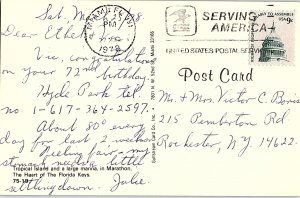 Sat. Ma
MIAMI, FL
PM
1978
U.S. MAIL
SERVING
AMERICA
UNITED STATES POSTAL SERVICE
USA 9c
Dear Ethel
Vic, congratulations
on your 72nd birthday
Hyde Park tel
no 1-617-364-2597.
About 80° every
day for last 2 weeks
Feeling fair - my
stomach needs a little
settling down. Julie
Tropical Island and a large marina, in Marathon.
The Heart of The Florida Keys.
Post Card
Mr. + Mrs. Victor C. Bon
215 Pemberton Rd
Rochester, N.Y. 14622.